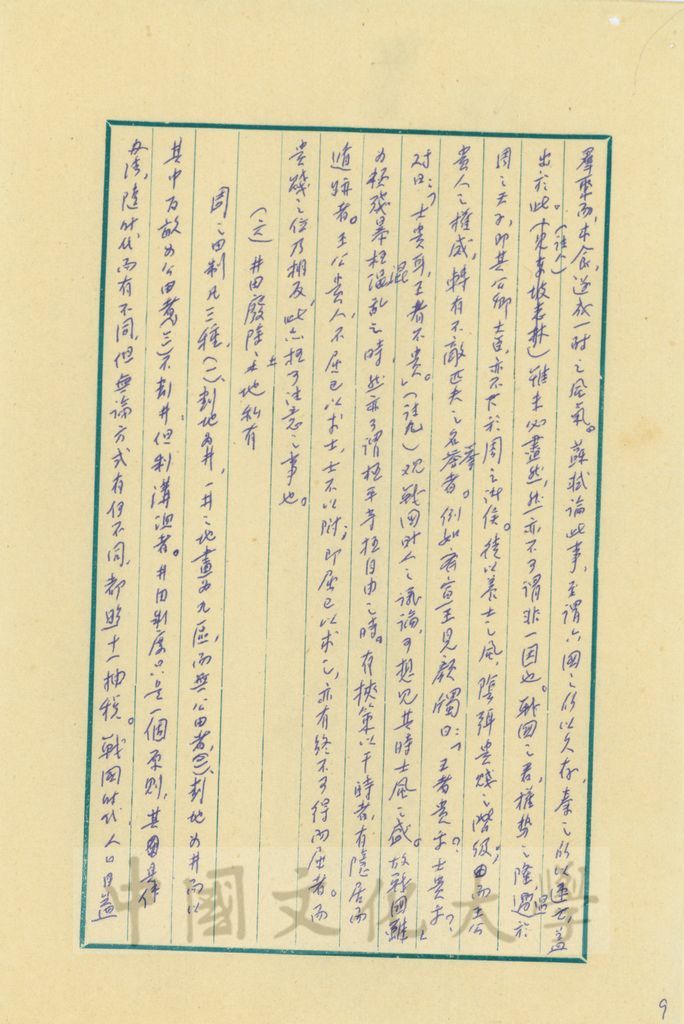 羣聚而求食，遂成一时之風氣。蘇軾論此事，至謂六國之所以久存，秦之所以速亡，蓋
出於此。（註八）（見東坡志林）雖未必盡然，然亦不可謂非一因也。戰国之君，權勢之隆，過於
周之天子，即其公卿大臣，亦不下於周之諸侯。徒以養士之風，隂弭貴賤之階級，由而王公
貴人之權威，轉有不敵匹夫之名譽者。例如齊宣王見顏斶曰：「王者貴乎？士貴乎？」
对曰：「士貴耳，王者不貴。」（註九）观戰国时人之議論，可想见其時士風之盛。故戰国雖
为極殘暴極混乱之時，然亦可谓極平等極自由之時。有挾策以干時者，有隱居而
遁跡者。王公貴人，不屈已以求士，士不以附；即屈已以求之，亦有終不可得而屈者。而
贵賤之位乃相反，此亦極可注意之事也。
（二）井田廢除土地私有
周之田制凡三種，（一）劃地为井，一井之地畫为九區，而無公田者，（二）劃地为井而以
其中百畝为公田者（三）不劃井但制溝洫者。井田制度只是一個原则，其具体
办法，隨时代而有不同，但無論方式有何不同，都照十一抽税。戰国时代，人口日益
中國文化大學
9